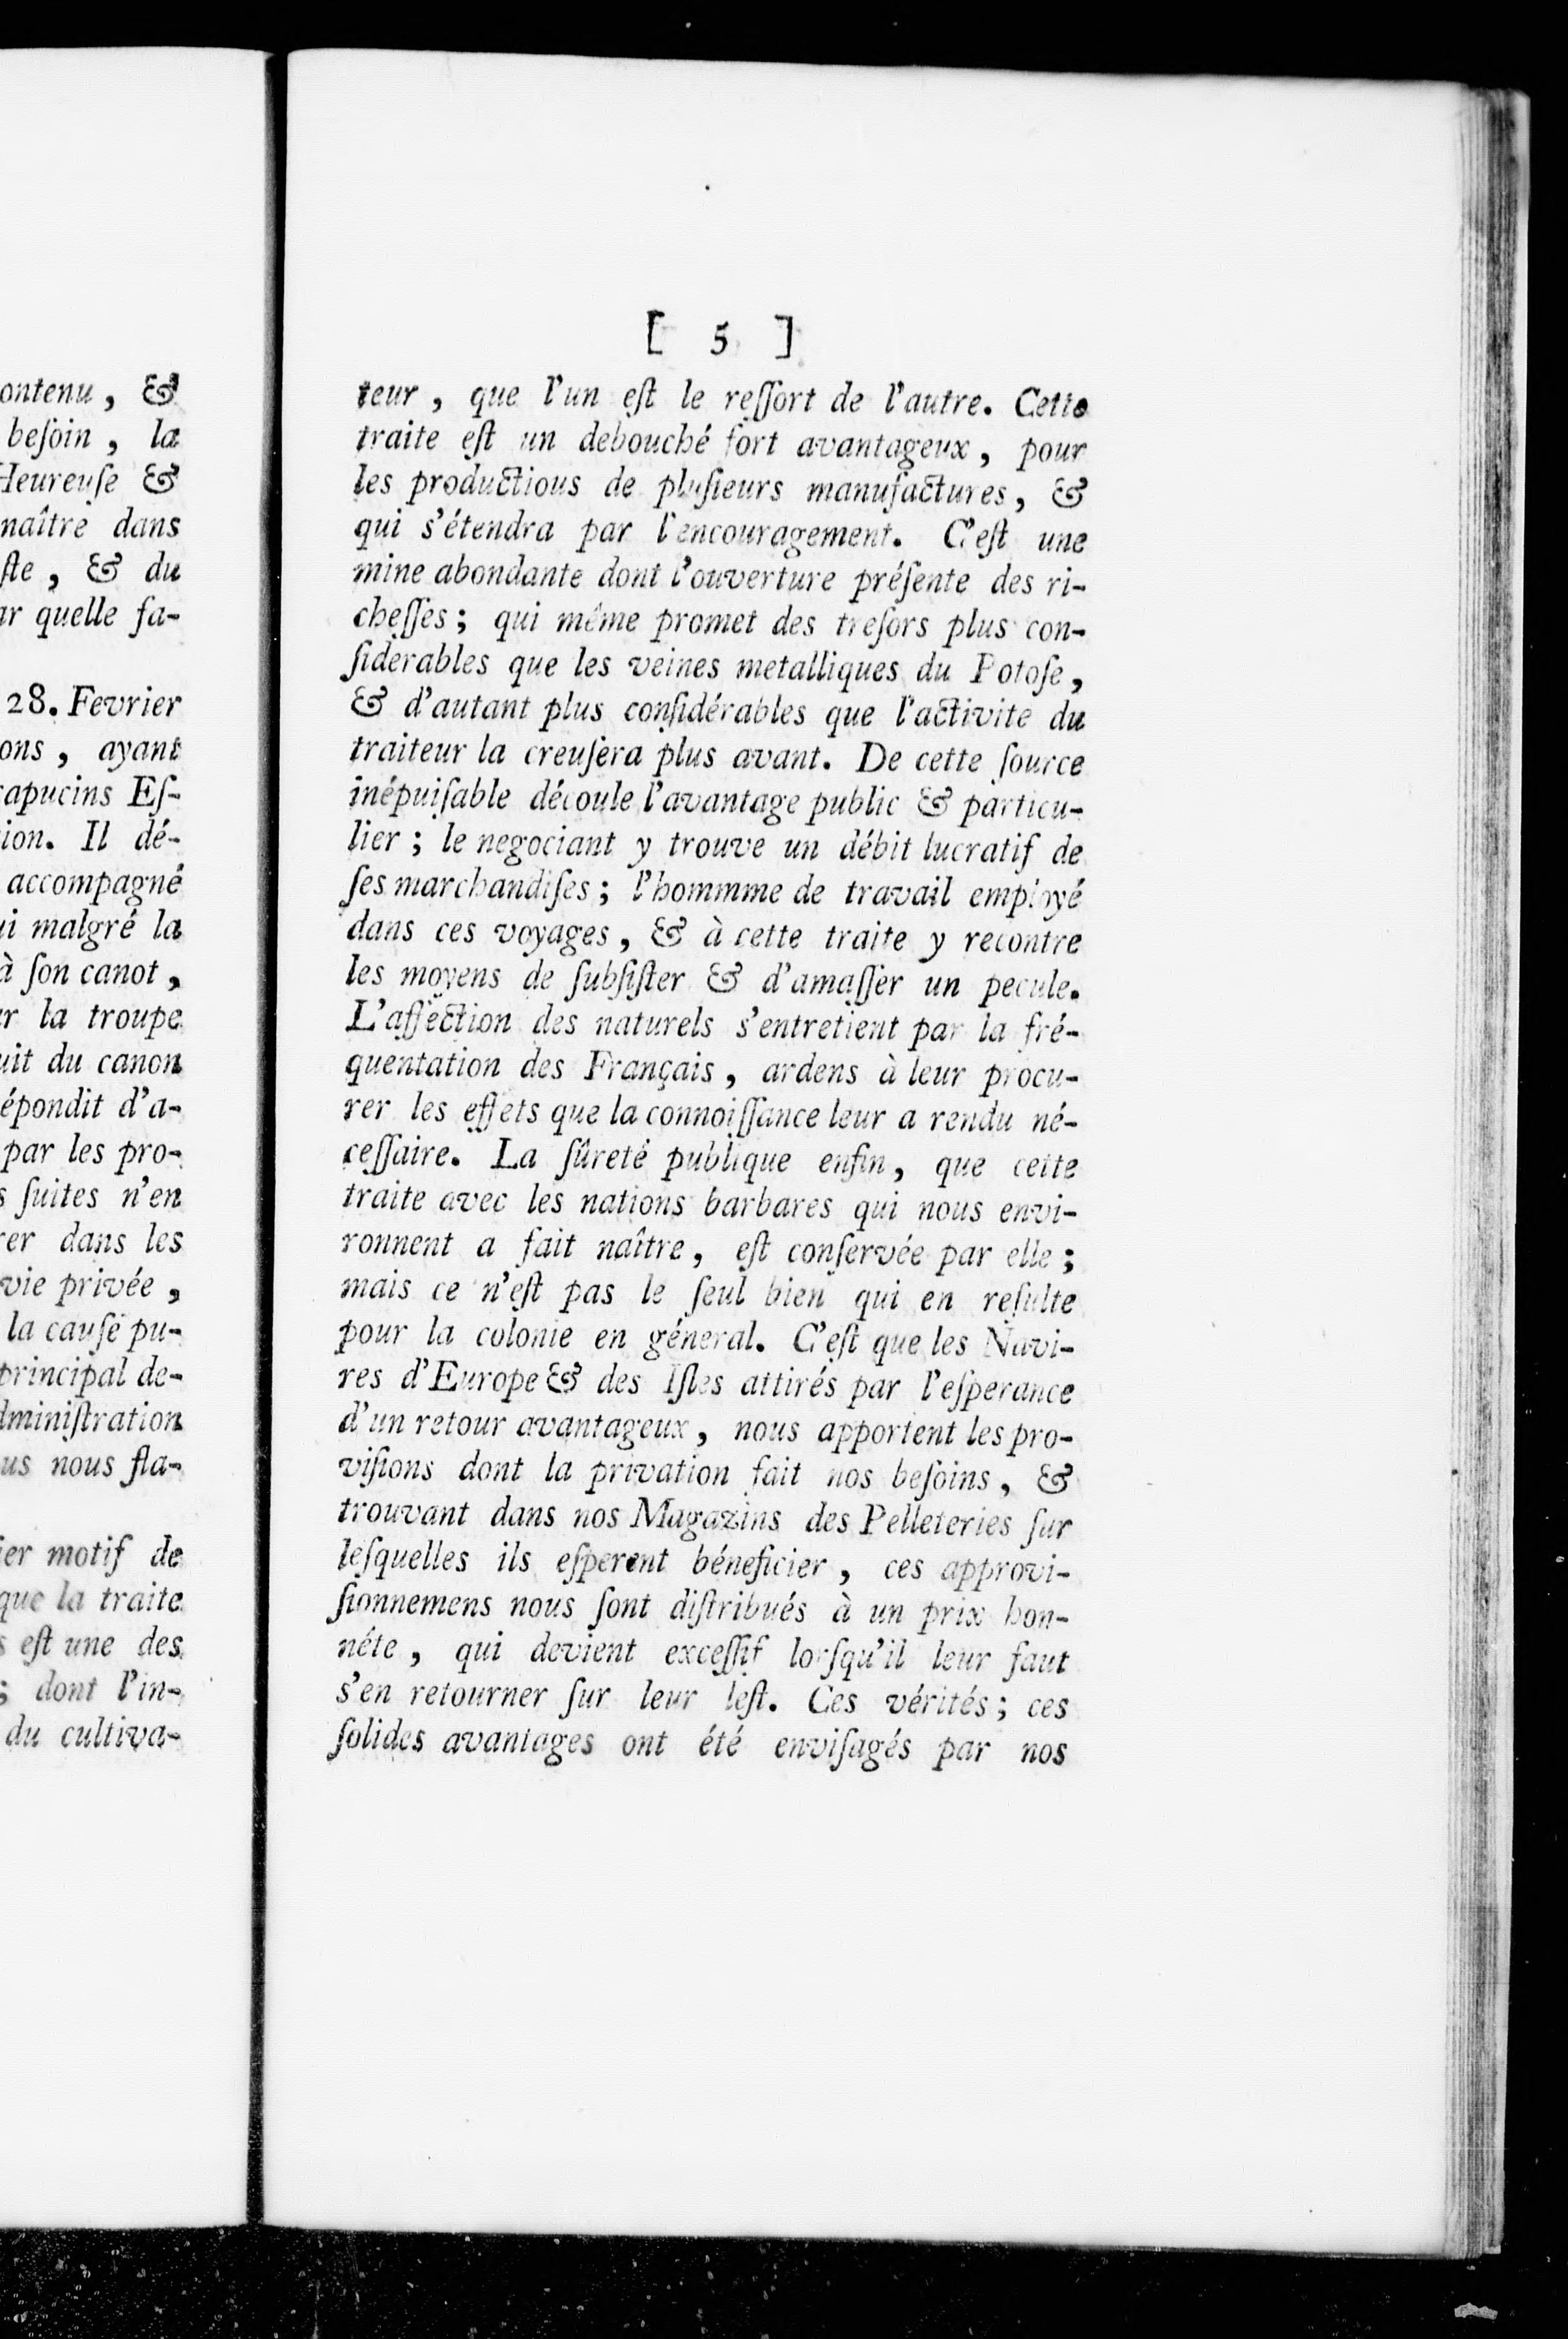 ontenu, &
besoin, la
Heureuse &
naître dans
ste, & du
ar quelle fa-
28. Fevrier
ons, ayant
capucins Es-
ion. Il dé-
accompagné
ui malgré la
à son canot,
ur la troupe
uit du canon
épondit d'a-
par les pro-
s suites n'en
rer dans les
vie privée,
la cause pu-
principal de-
dministration
us nous fla-
ier motif de
que la traite
s est une des
; dont l'in-
du cultiva-
[ 5 ]
teur, que l'un est le ressort de l'autre. Cette
traite est un debouché fort avantageux, pour
les productious de plusieurs manufactures, &
qui s'étendra par l'encouragement. C'est une
mine abondante dont l'ouverture présente des ri-
chesses; qui même promet des tresors plus con-
siderables que les veines metalliques du Potose,
& d'autant plus considérables que l'activite du
traiteur la creusera plus avant. De cette source
inépuisable découle l'avantage public & particu-
lier; le negociant y trouve un débit lucratif de
ses marchandises; l'hommme de travail employé
dans ces voyages, & à cette traite y recontre
les moyens de subsister & d'amasser un pecule.
L'affection des naturels s'entretient par la fré-
quentation des Français, ardens à leur procu-
rer les effets que la connoissance leur a rendu né-
cessaire. La sûreté publique enfin, que cette
traite avec les nations barbares qui nous envi-
ronnent a fait naître, est conservée par elle;
mais ce n'est pas le seul bien qui en resulte
pour la colonie en géneral. C'est que les Navi-
res d'Europe & des Isles attirés par l'esperance
d'un retour avantageux, nous apportent les pro-
visions dont la privation fait nos besoins, &
trouvant dans nos Magazins des Pelleteries sur
lesquelles ils esperent béneficier, ces approvi-
sionnemens nous sont distribués à un prix hon-
néte, qui devient excessif lorsqu'il leur faut
s'en retourner sur leur lest. Ces vérités; ces
solides avantages ont été envisagés par nos